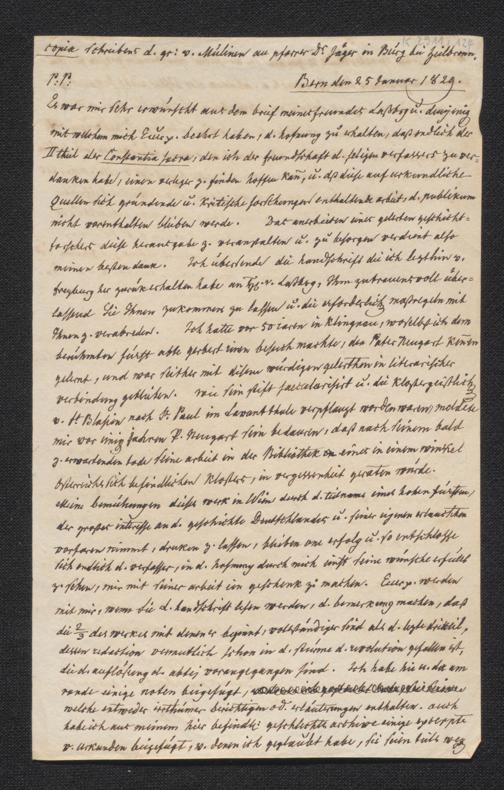 copia schreibens d. gr: v. Mülinen an pfarrer Dr Jäger in Bürg bei Heilbronn.
P. P. Bern den 25 Januar 1829.
Es war mir sehr erwünscht aus dem brief meines freundes Laßberg u. demjenig
mit welchem mich Euer beehrt haben, d. hofnung zu erhalten, daß endlich der
II theil der Constantia sacra, den ich der freundschaft d. seligen verfassers zu ver-
danken habe, einen verleger z. finden hoffen kañ, u. daß diese auf urkundliche
Quellen sich gründende u. kritische forschungen enthaltende arbeit d. publikum
nicht vorenthalten bleiben werde. Das anerbieten eines gelerten geschicht-
forschers diese herausgabe z. veranstalten u. zu besorgen verdient also
meinen besten dank. Ich übersende die handschrift die ich lezthin v.
freyburg her zurük erhalten habe an v. Laßberg, Ihm zutrauensvoll über-
lassend Sie Ihnen zukommen zu lassen u. die erforderlich maßregeln mit
Ihnen z. verabreden. Ich hatte vor 50 iaren in Klingnau, woselbst ich dem
berühmten fürst abte gerbert einen besuch machte, den Pater Neugart kennen
gelernt, und war seither mit disem würdigen gelerthen in literarischer
verbindung geblieben. wie sein stift saecularisirt u. die klostergeistlich
v. St Blasien nach St. Paul im Lavantthale verpflanzt worden waren, meldete
mir vor einig Jadren P. Neugart sein bedauren, daß nach seinem bald
z. erwartenden tode seine arbeit in der Bibliothek eines in einem winkel
österreichs sich befindlichen klosters, in vergessenheit geraten würde.
Meine bemühungen dises werk in Wien durch d. teilname eines hohen fürsten,
der großes interesse an d. geschichte Deutschlandes u. seiner eigenen erlauchten
vorfaren nimmt, druken z. lassen, blieben one erfolg u. so entschlosse
sich endlich d. verfasser, in d. hofnung durch mich einst seine wünsche erfüllt
z. sehen, mir mit seiner arbeit ein geschenk z. machen. Euer werden
mit mir, wenn sie d. handschrift lesen werden, d. bemerkung machen, daß
die 2/3 des werkes mit denen er beginnt, vollständiger sind als d. lezte drittel,
dessen redaction vermutlich schon in d. sturme d. revolution gefallen ist,
die d. auflösung d. abtei vorangegangen sind. Ich habe hie u. da am
rande einige noten beigefügt,
welche entweder irrthümer berichtigen od. erläuterungen enthalten. auch
habe ich aus meinem hier befindl: geschlechts archive einige excerpte
v. urkunden beigefügt, v. denen ich geglaubt habe, sie seien teils weg